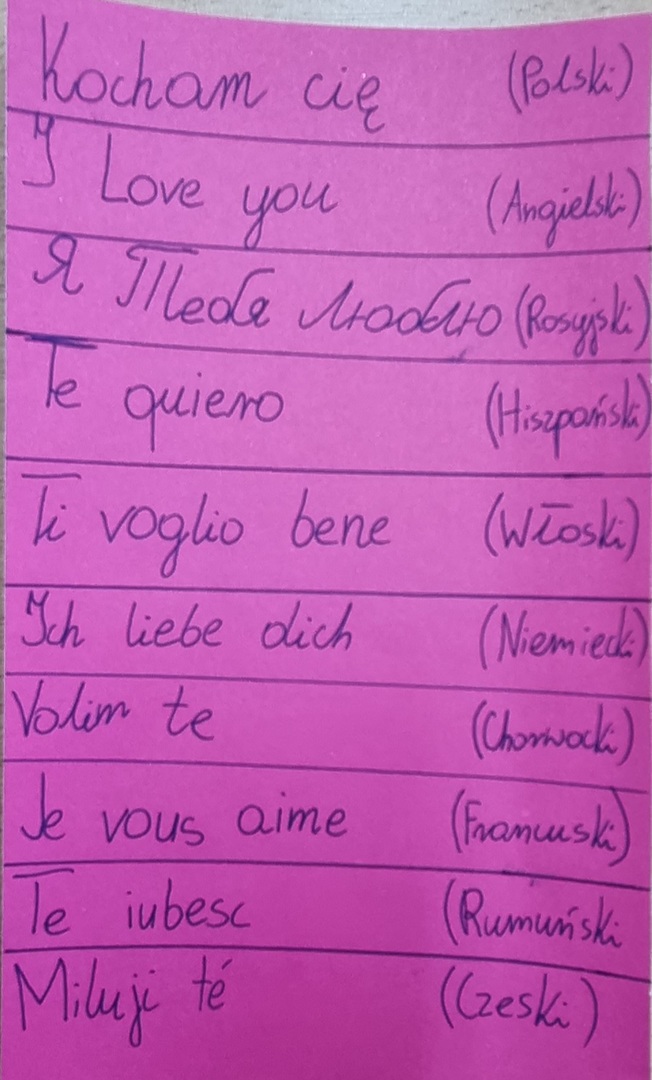 Kocham cię (Polski)
I Love you (Angielski)
Я Тебя люблю (Rosyjski)
Te quiero (Hiszpański)
Ti voglio bene (Włoski)
Ich liebe dich (Niemiecki)
Volim te (Chorwacki)
Je vous aime (Francuski)
Te iubesc (Rumuński
Miluji té (Czeski)